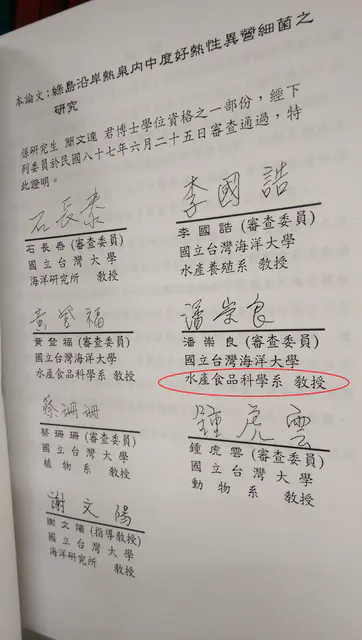 本論文:綠島沿岸熱泉內中度好熱性異營細菌之
研究
係研究生 簡文達 君博士學位資格之一部份,經下
列委員於民國八十七年六月二十五日審查通過,特
此證明。
石長泰
李國誥
石長泰(審查委員)
國立台灣大學
海洋研究所 教授
李國誥(審查委員)
國立台灣海洋大學
水產養殖系 教授
黃登福
潘崇良
黃登福(審查委員)
國立台灣海洋大學
水產食品科學系 教授
潘崇良(審查委員)
國立台灣海洋大學
水產食品科學系 教授
蔡珊珊
鍾虎雲
蔡珊珊(審查委員)
國立台灣大學
植物系 教授
鍾虎雲(審查委員)
國立台灣大學
動物系 教授
謝文陽
謝文陽(指導教授)
國立台灣大學
海洋研究所 教授